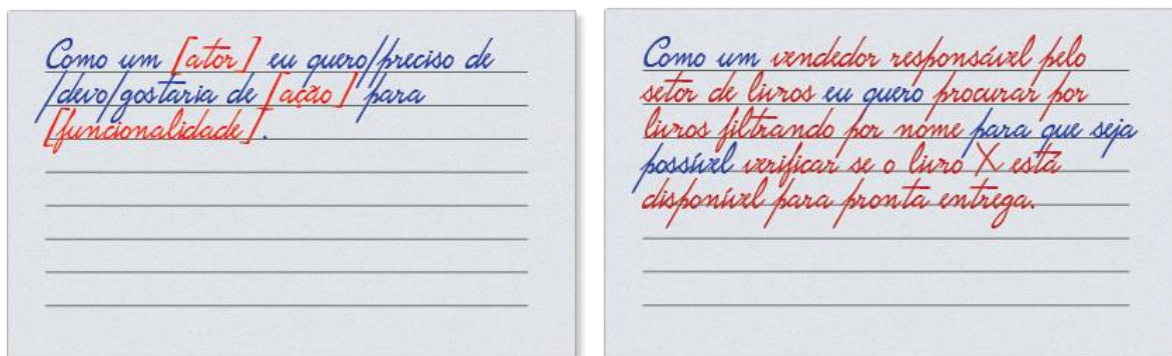 Como um [ator] eu quero/preciso de
/devo/gostaria de [ação] para
[funcionalidade].
Como um vendedor responsável pelo
setor de livros eu quero procurar por
livros filtrando por nome para que seja
possível verificar se o livro X está
disponível para pronta entrega.